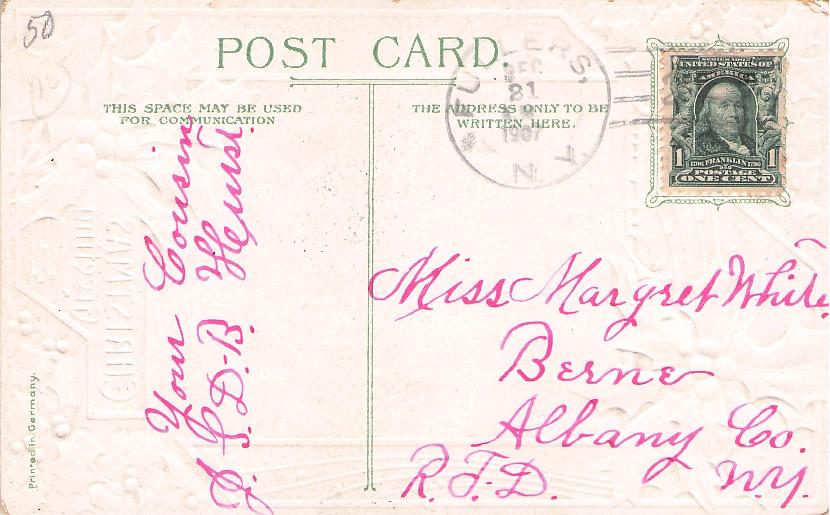 50
POST CARD.
THIS SPACE MAY BE USED
FOR COMMUNICATION
THE ADDRESS ONLY TO BE
WRITTEN HERE.
DEC
21
1907
N Y
SERIES 1902
UNITED STATES OF
AMERICA
1
FRANKLIN
1
POSTAGE
ONE CENT
Your Cousin
Miss Margret White
Berne
Albany Co.
R.F.D. N.Y.
CHRISTMAS
Printed in Germany.